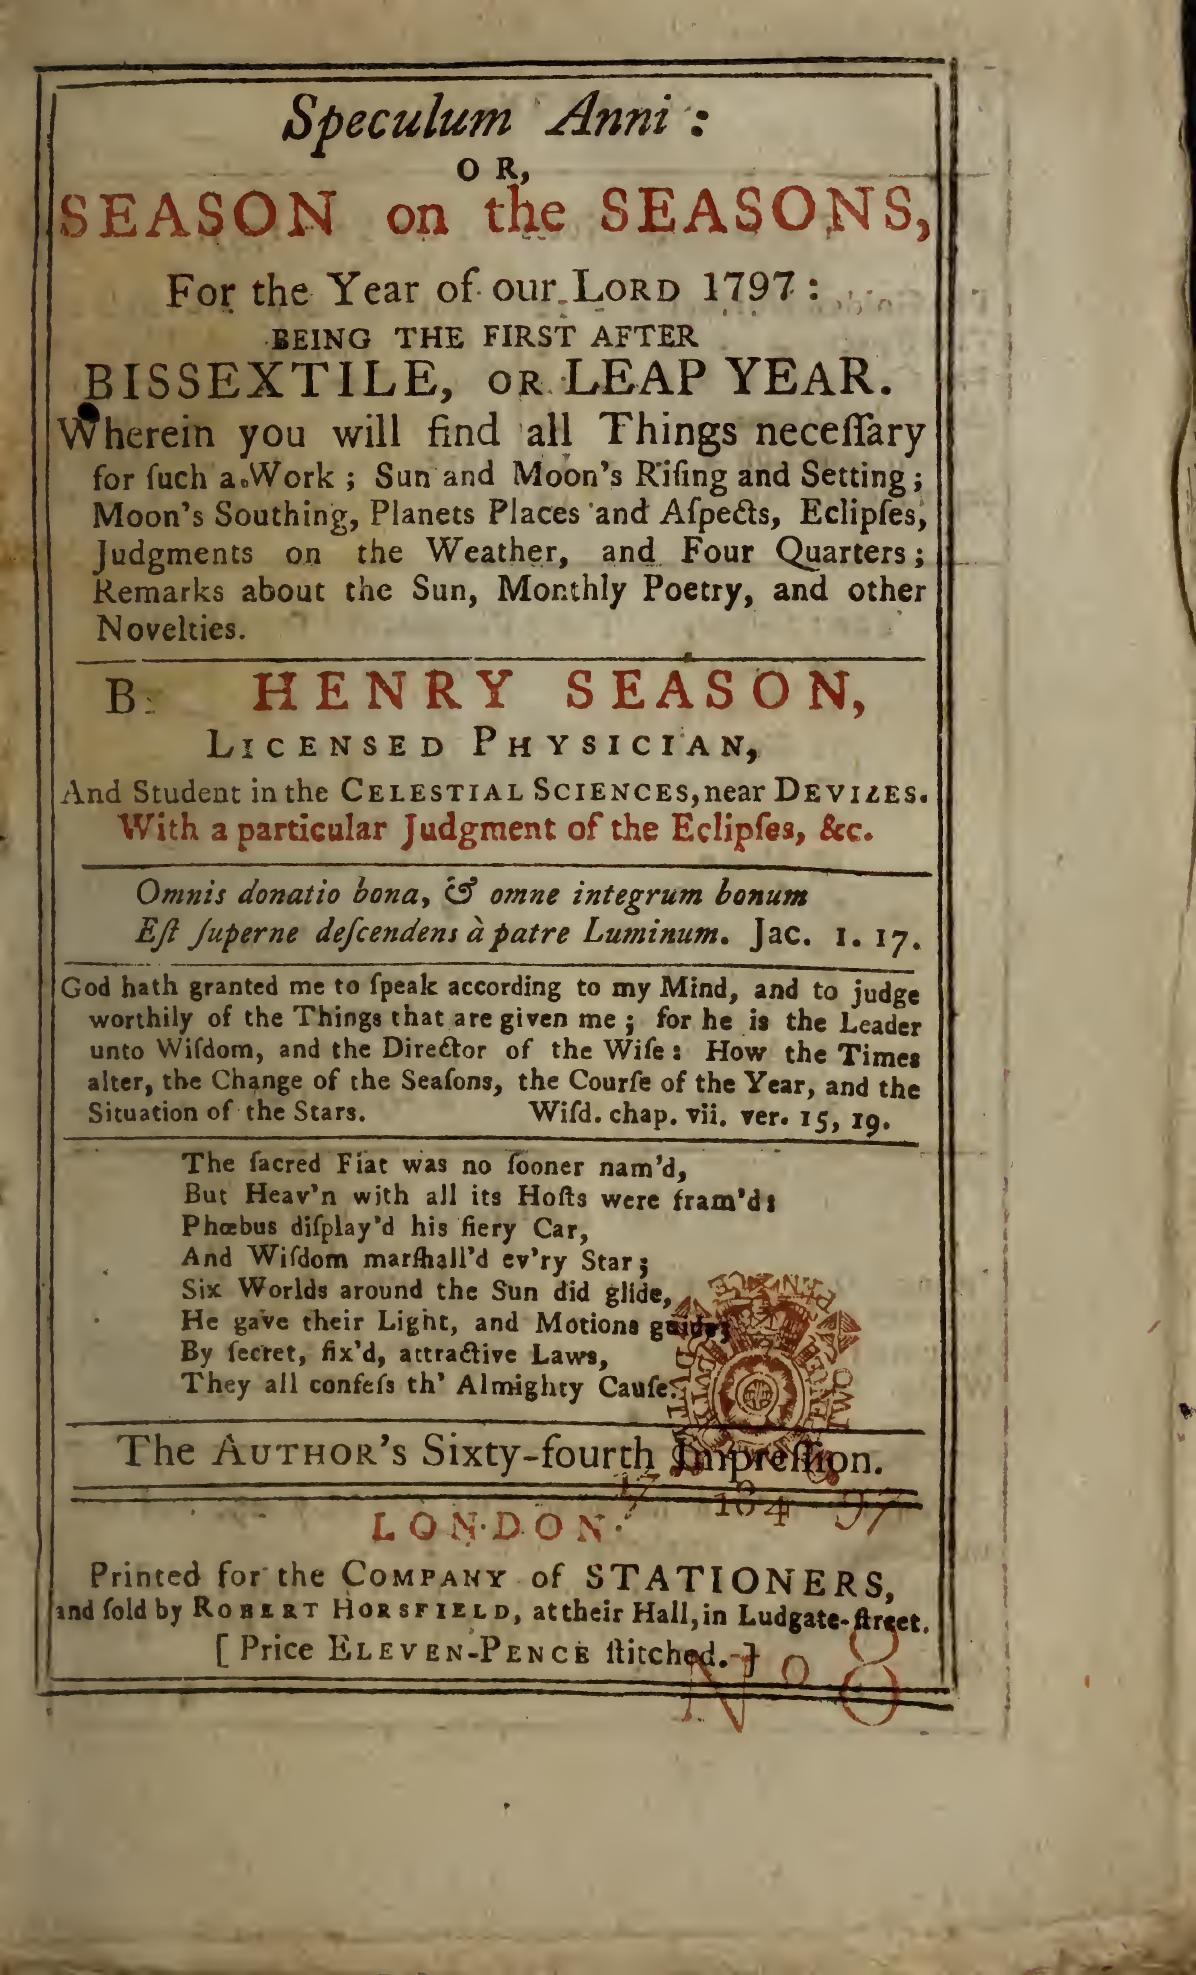 Speculum Anni:
OR,
SEASON on the SEASONS,
For the Year of our LORD 1797:
BEING THE FIRST AFTER
BISSEXTILE, OR LEAP YEAR.
Wherein you will find all Things neceſſary
for ſuch a Work; Sun and Moon's Riſing and Setting;
Moon's Southing, Planets Places and Aſpects, Eclipſes,
Judgments on the Weather, and Four Quarters;
Remarks about the Sun, Monthly Poetry, and other
Novelties.
B: HENRY SEASON,
LICENSED PHYSICIAN,
And Student in the CELESTIAL SCIENCES, near DEVIZES.
With a particular Judgment of the Eclipſes, &c.
Omnis donatio bona, & omne integrum bonum
Eſt ſuperne deſcendens à patre Luminum. Jac. 1. 17.
God hath granted me to ſpeak according to my Mind, and to judge
worthily of the Things that are given me; for he is the Leader
unto Wiſdom, and the Director of the Wiſe: How the Times
alter, the Change of the Seaſons, the Courſe of the Year, and the
Situation of the Stars. Wiſd. chap. vii. ver. 15, 19.
The ſacred Fiat was no ſooner nam'd,
But Heav'n with all its Hoſts were fram'd:
Phœbus diſplay'd his fiery Car,
And Wiſdom marſhall'd ev'ry Star;
Six Worlds around the Sun did glide,
He gave their Light, and Motions guide;
By ſecret, fix'd, attractive Laws,
They all confeſs th' Almighty Cauſe.
PENCE
TWO
The AUTHOR's Sixty-fourth Impreſſion.
17 184 97
LONDON:
Printed for the COMPANY of STATIONERS,
and ſold by ROBERT HORSFIELD, at their Hall, in Ludgate-ſtreet.
[Price ELEVEN-PENCE ſtitched.]
No 8